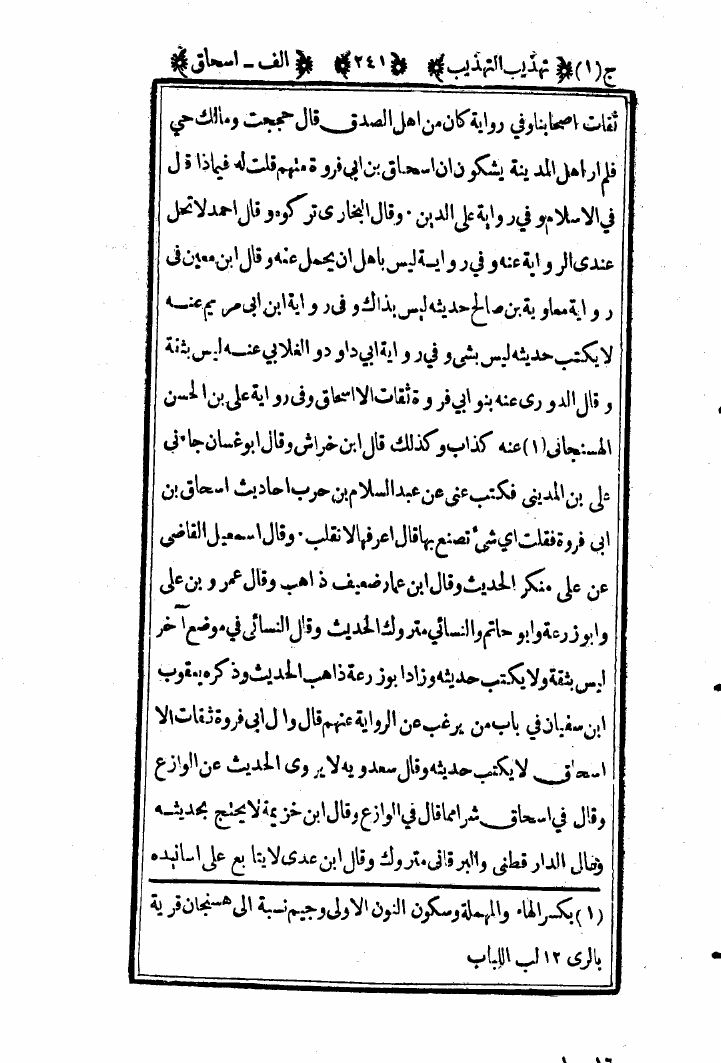 ج (١) تهذيب التهذيب ٢٤١ الف - اسحاق
ثقات اصحابنا وفي رواية كان من اهل الصدق قال حججت ومالك حي
فلم ار اهل المدينة يشكون ان اسحاق بن ابي فروة متهم قلت له فيماذا قال
في الاسلام وفي رواية على الدين · وقال البخاري تركوه وقال احمد لا تحل
عندى الرواية عنه وفي رواية ليس باهل ان يحمل عنه وقال ابن معين فى
رواية معاوية بن صالح حديثه ليس بذاك وفى رواية ابن ابى مريم عنه
لا يكتب حديثه ليس بشى وفي رواية ابي داود الغلابي عنه ليس بثقة
وقال الدورى عنه بنو ابي فروة ثقات الا اسحاق وفى رواية على بن الحسن
الهسنجانى (١) عنه كذاب وكذلك قال ابن خراش وقال ابو غسان جاءنى
على بن المدينى فكتب عنى عن عبد السلام بن حرب احاديث اسحاق بن
ابى فروة فقلت اي شئ تصنع بها قال اعرفها لا تقلب · وقال اسمعيل القاضى
عن على منكر الحديث وقال ابن عمار ضعيف ذاهب وقال عمرو بن على
وابو زرعة وابو حاتم والنسائي متروك الحديث وقال النسائى في موضع آخر
ليس بثقة ولا يكتب حديثه وزاد ابو زرعة ذاهب الحديث وذكره يعقوب
ابن سفيان في باب من يرغب عن الرواية عنهم قال وآل ابى فروة ثقات الا
اسحاق لا يكتب حديثه وقال سعدويه لا يروى الحديث عن الوازع
وقال في اسحاق شرا مما قال في الوازع وقال ابن خزيمة لا يحتج بحديثه
وقال الدار قطنى والبرقانى متروك وقال ابن عدى لا يتابع على اسانيده
(١) بكسر الهاء والمهملة وسكون النون الاولى وجيم نسبة الى هسنجان قرية
بالرى ١٢ لب اللباب